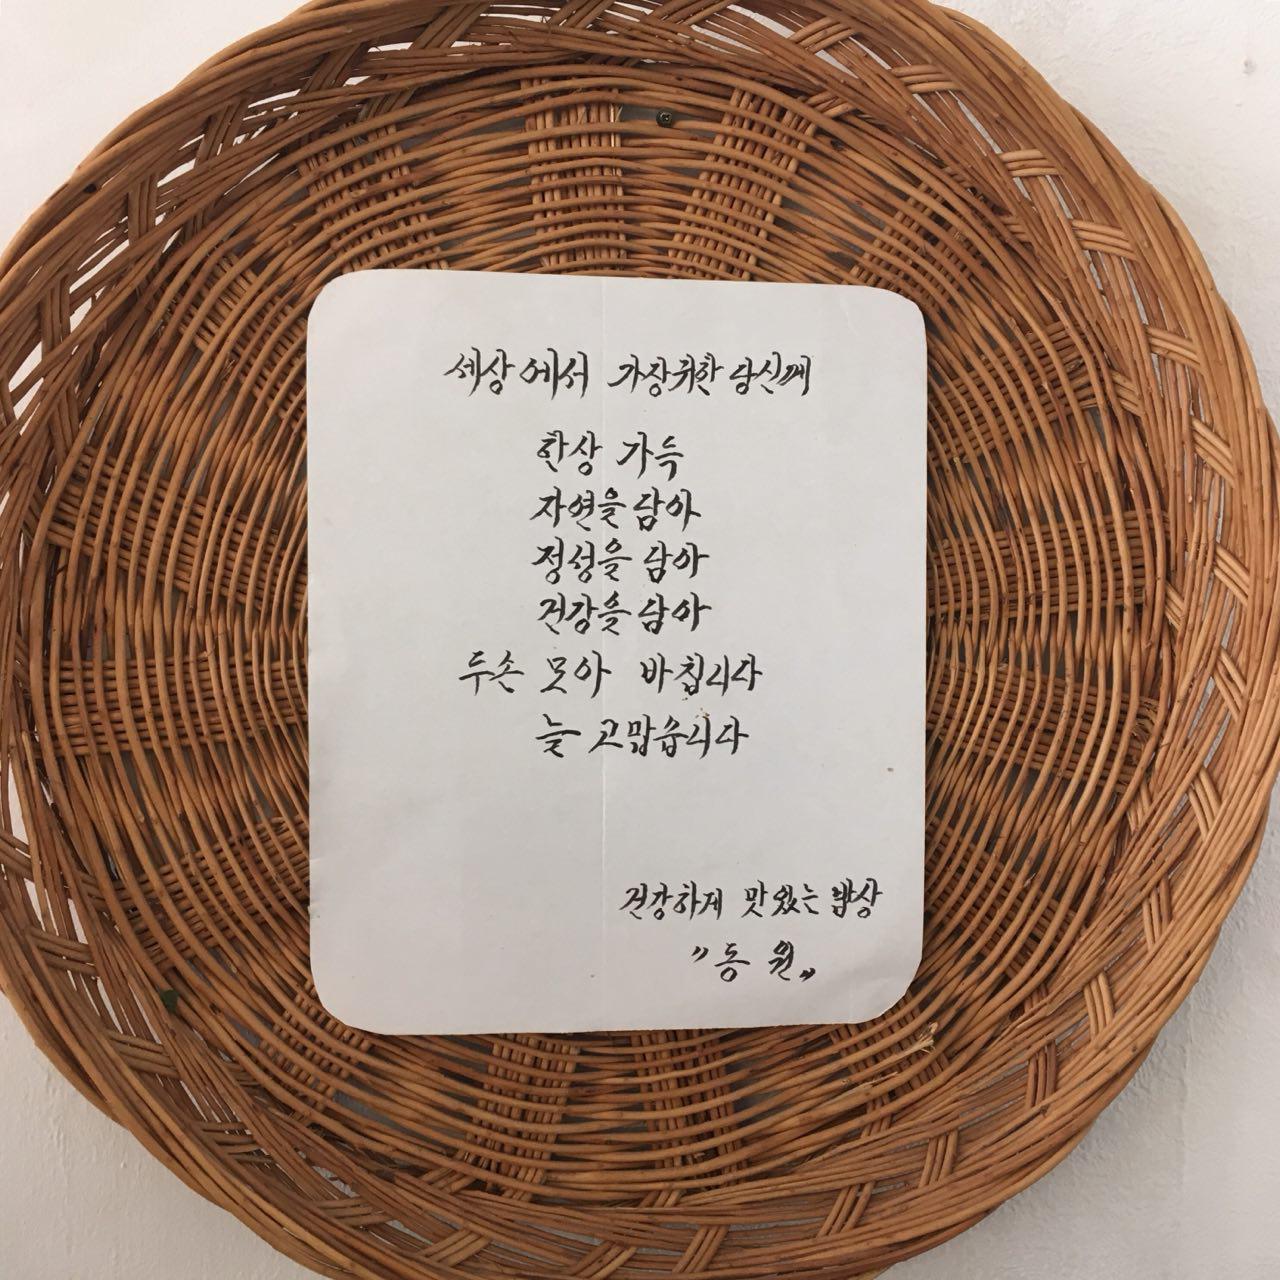 세상에서 가장 귀한 당신께
한상 가득
자연을 담아
정성을 담아
건강을 담아
두손 모아 바칩니다
늘 고맙습니다
건강하게 맛있는 밥상
"동원"